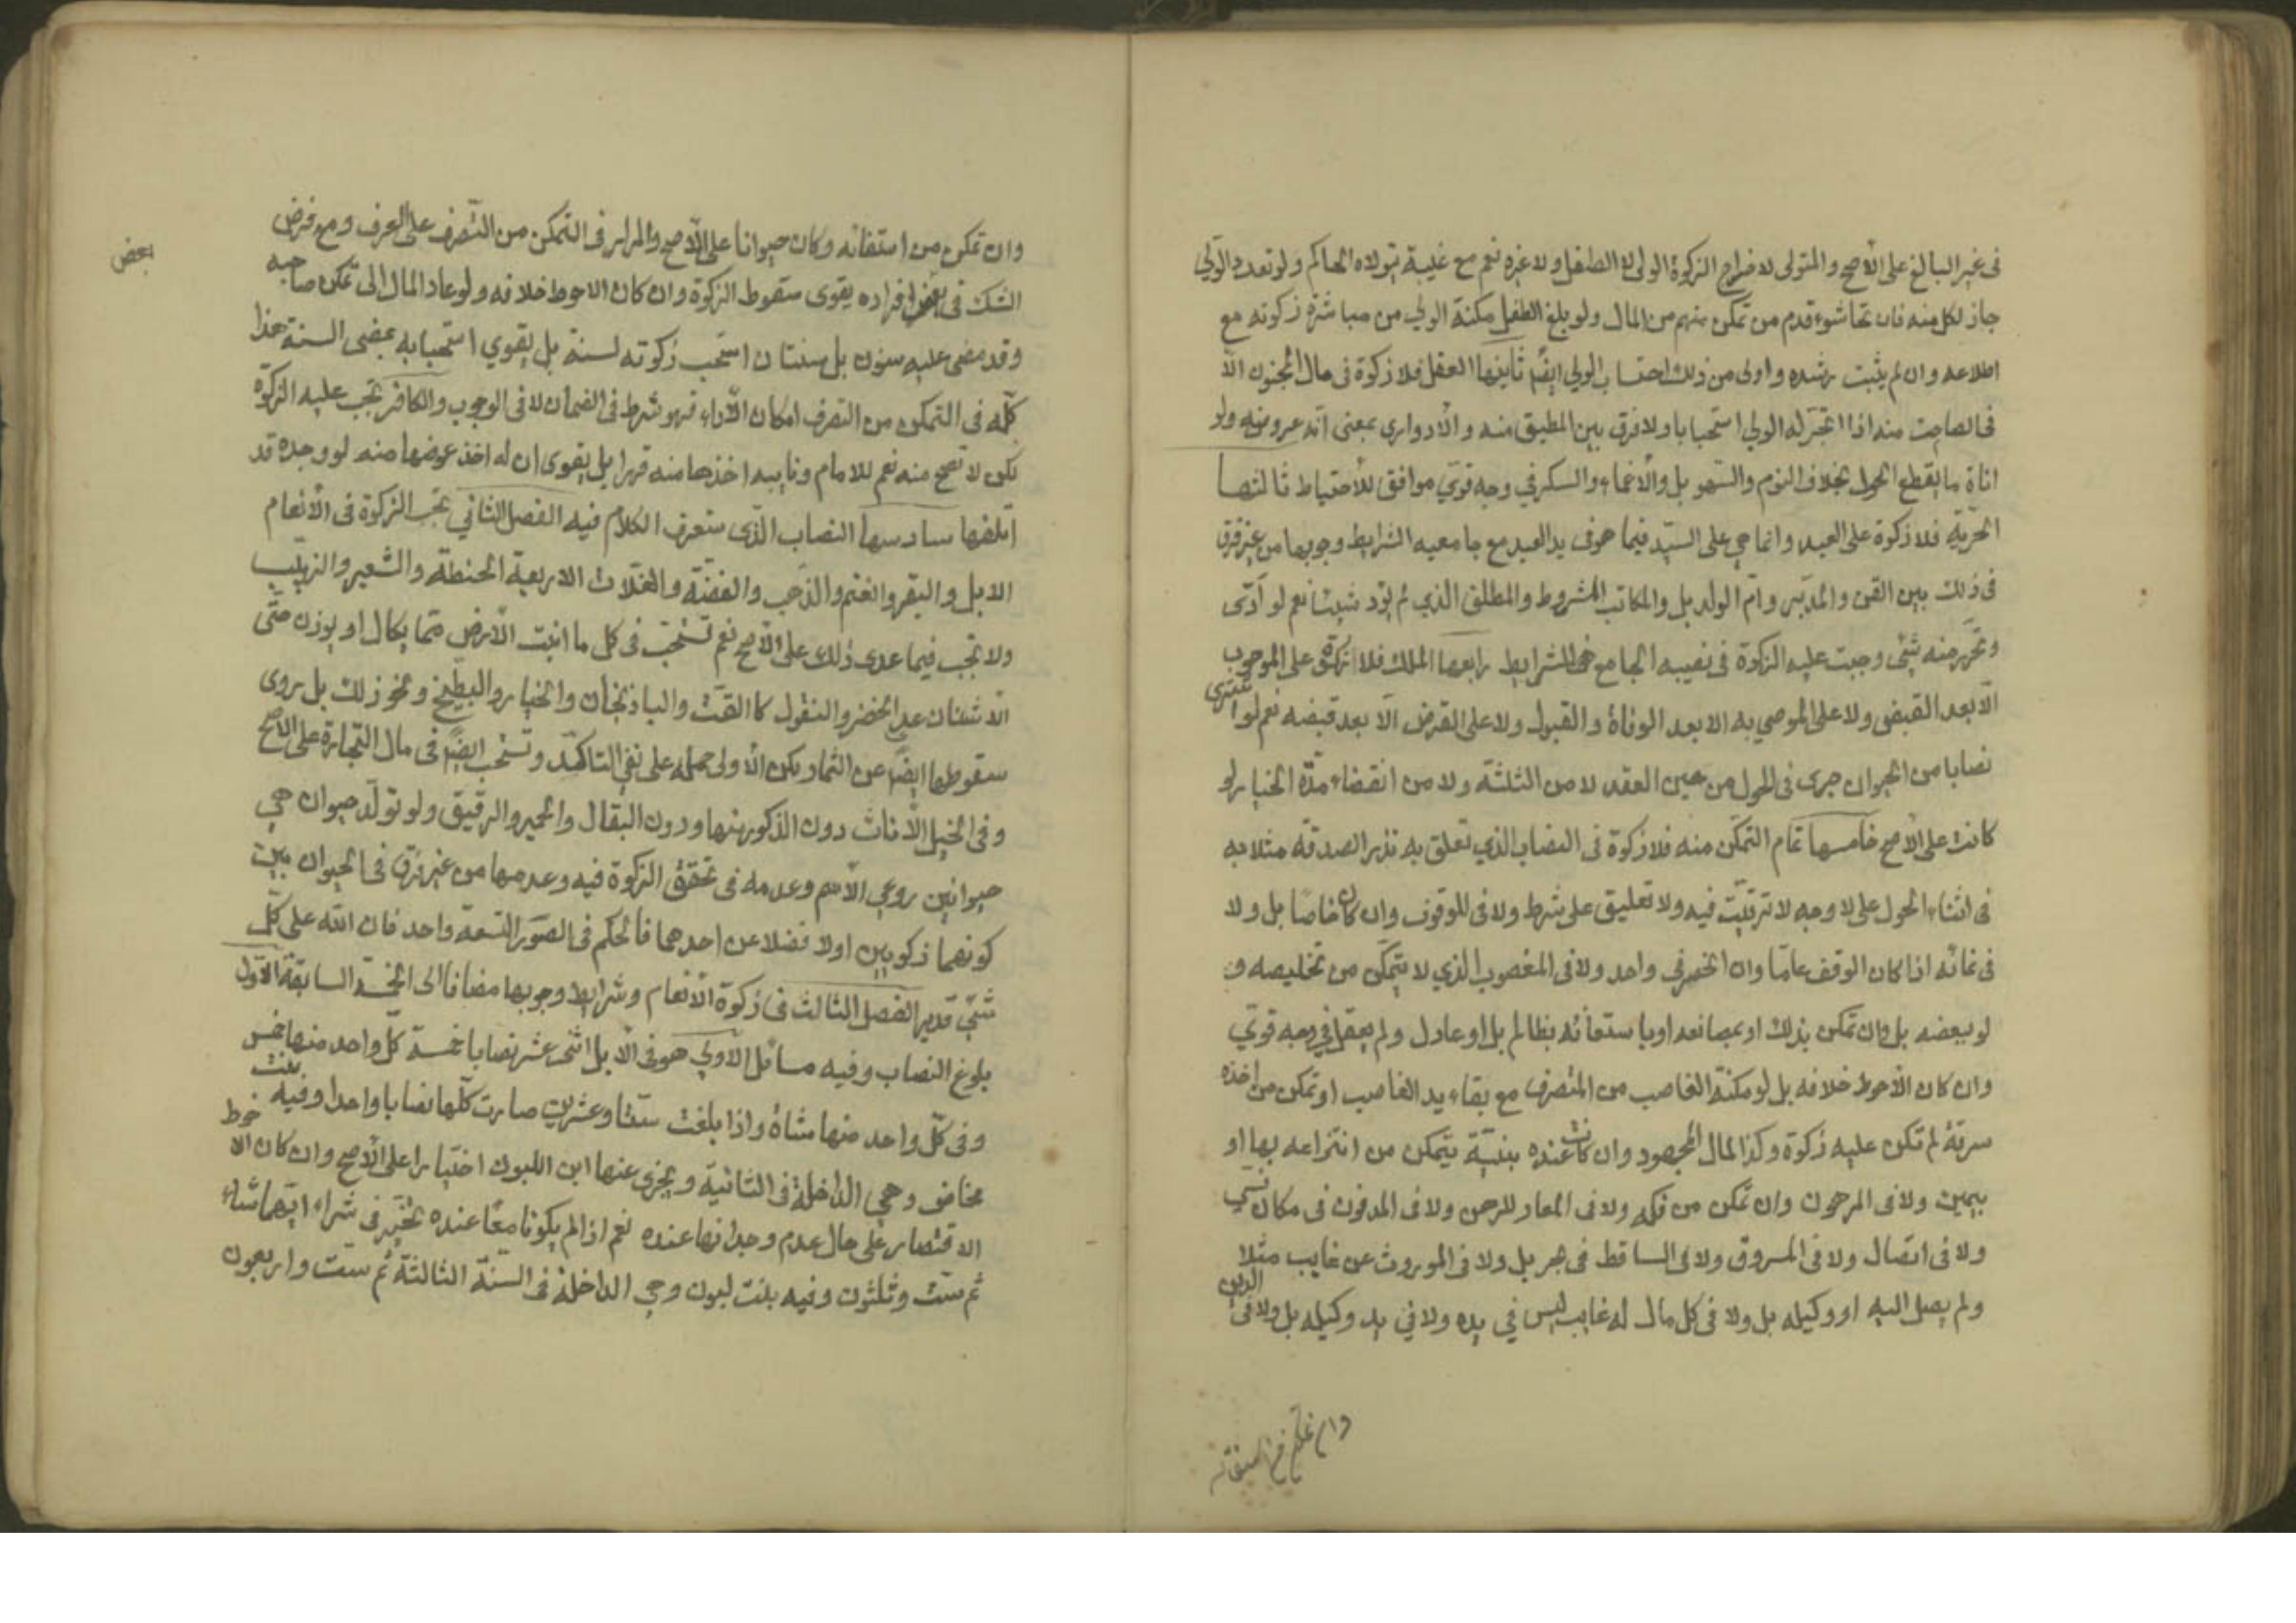 فى غير البالغ على الأصح والمتولى لاخراج الزكوة الولى لا الطفل ولا غيره نعم مع غيبته يتولاه الحاكم ولو تعدد الولي
جاز لكل منه فان تشاحوا قدم من تمكن منهم من المال ولو بلغ الطفل مكنه الولي من مباشرة زكوته مع
اطلاعه وان لم يثبت رشده واولى من ذلك احتساب الولي ايضًا ثانيها العقل فلا زكوة فى مال المجنون الا
فى الصامت منه اذا اتجر له الولي استحبابا ولا فرق بين المطبق منه والأدواري بمعنى انه عروضه ولو
اناة ما يقطع الحول بخلاف النوم والسهو بل والأغماء والسكر في وجه قوي موافق للأحتياط ثالثها
الحرّية فلا زكوة على العبد وانما هي على السيّد فيما هو فى يد العبد مع جامعيه الشرايط وجوبها من غير فرق
فى ذلك بين القن والمدبّر وامّ الولد بل والمكاتب المشروط والمطلق الذي لم يؤد شيئا نعم لو أدّى
وتحرّر منه شيئى وجبت عليه الزكوة فى نصيبه الجامع للشرايط رابعها الملك فلا زكوة على الموهوب
الّا بعد القبض ولا على الموصي به الا بعد الوفاة والقبول ولا على القرض الّا بعد قبضه نعم لو اشترى
نصابا من الحيوان جرى فى الحول من حين العقد لا من الثلثة ولا من انقضاء مدّة الخيار لو
كانت على الأصح خامسها تمام التمكن منه فلا زكوة فى النصاب الذي تعلق به نذر الصدقة مثلا به
فى اثناء الحول على لا وجه لا ترتيب فيه ولا تعليق على شرط ولا فى الموقوف وان كان خاصّا بل ولا
فى نمائه اذا كان الوقف عامّا وان انحصر فى واحد ولا فى المغصوب الذي لا يتمكن من تخليصه و
لو ببعضه بل وان تمكن بذلك او بمصانعه او باستعانة بظالم بل او عادل ولم يعقل في وجه قوي
وان كان الأحوط خلافه بل لو مكنه الغاصب من التصرف مع بقاء يد الغاصب او تمكن من اخذه
سرقة لم تكن عليه زكوة وكذا المال المجحود وان كانت عنده بيّنة يتمكن من انتزاعه بها او
بيمين ولا فى المرهون وان تمكن من فكه ولا فى المعار للرهن ولا فى المدفون فى مكان نسي
ولا فى الضال ولا فى المسروق ولا فى الساقط فى بحر بل ولا فى الموروث عن غايب مثلا
ولم يصل اليه او وكيله بل ولا فى كل مال له غايب ليس في يده ولا في يد وكيله بل ولا فى الدين
وان تمكن من استفائه
وان تمكن من استفائه وكان حيوانا على الأصح والمدار فى التمكن من التصرف على العرف ومع فرض
الشك فى بعض افراده يقوى سقوط الزكوة وان كان الاحوط خلافه ولو عاد المال الى تمكن صاحبه
بعض
وقد مضى عليه سنون بل سنتان استحب زكوته لسنة بل يقوي استحبابه بمضى السنة هذا
كلّه فى التمكن من التصرف امكان الأداء فهو شرط فى الضمان لا فى الوجوب والكافر تجب عليه الزكوة
لكن لا تصح منه نعم للامام ونايبه اخذها منه قهرا بل يقوى ان له اخذ عوضها منه لو وجده قد
اتلفها سادسها النصاب الذى ستعرف الكلام فيه الفصل الثاني تجب الزكوة فى الأنعام
الابل والبقر والغنم والذهب والفضّة والغلات الاربعة الحنطة والشعير والزبيب
ولا تجب فيما عدى ذلك على الأصح نعم تستحب فى كل ما انبت الأرض ممّا يكال او يوزن حتّى
الاشنان عدا الخضر والبقول كالقتّ والباذنجان والخيار والبطّيخ ونحو ذلك بل روى
سقوطها ايضًا عن الثمار ولكن الأولى حمله على نفى التاكّد وتستحب ايضًا فى مال التجارة على الاصح
وفى الخيل الأناث دون الذكور منها ودون البغال والحمير والرقيق ولو تولّد حيوان حي
حيوانين روعي الأسم وعدمه فى تحقق الزكوة فيه وعدمها من غير فرق فى الحيوان بين
كونهما زكويين اولا فضلا عن احدهما فالحكم فى الصور التسعة واحد فان اللّه على كلّ
شيئى قدير الفصل الثالث فى زكوة الأنعام وشرايط وجوبها مضافا الى الخمسة السابقة الأول
بلوغ النصاب وفيه مسائل الأولي هو فى الأبل اثنى عشر نصابا خمسة كلّ واحد منها خمس
وفى كلّ واحد منها شاة واذا بلغت ستا وعشرين صارت كلّها نصابا واحدا وفيه بنت
مخاض وهي الداخلة فى الثانية ويجزى عنها ابن اللبون اختيارا على الأصح وان كان الاحوط
الاقتصار على حال عدم وجدانها عنده نعم اذا لم يكونا معًا عنده تخير فى شراء ايّهما شاء
ثم ستّ وثلثون وفيه بنت لبون وهي الداخلة فى السنة الثالثة ثم ستّ واربعون